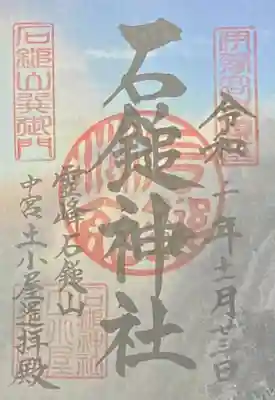 令和二年十一月廿三日
石鎚神社
霊峰石鎚山
中宮土小屋遥拝殿
石鎚山巽御門
石鎚神社
土小屋